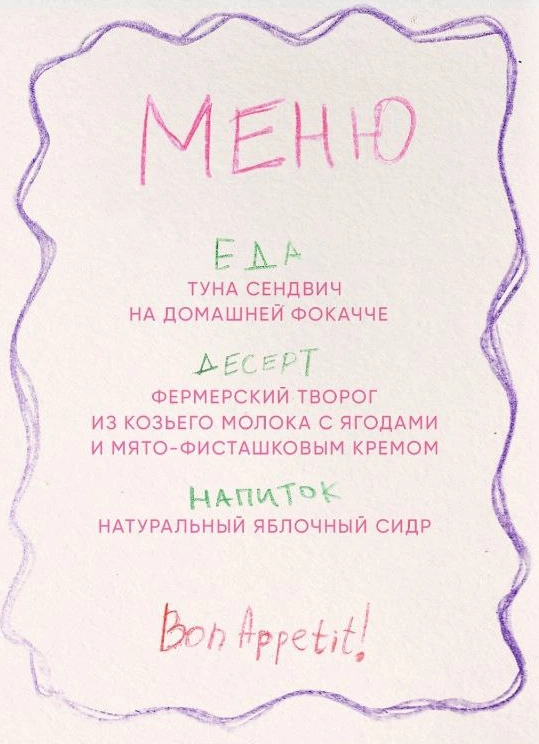 МЕНЮ
ЕДА
ТУНА СЕНДВИЧ
НА ДОМАШНЕЙ ФОКАЧЧЕ
ДЕСЕРТ
ФЕРМЕРСКИЙ ТВОРОГ
ИЗ КОЗЬЕГО МОЛОКА С ЯГОДАМИ
И МЯТО-ФИСТАШКОВЫМ КРЕМОМ
НАПИТОК
НАТУРАЛЬНЫЙ ЯБЛОЧНЫЙ СИДР
Bon Appetit!